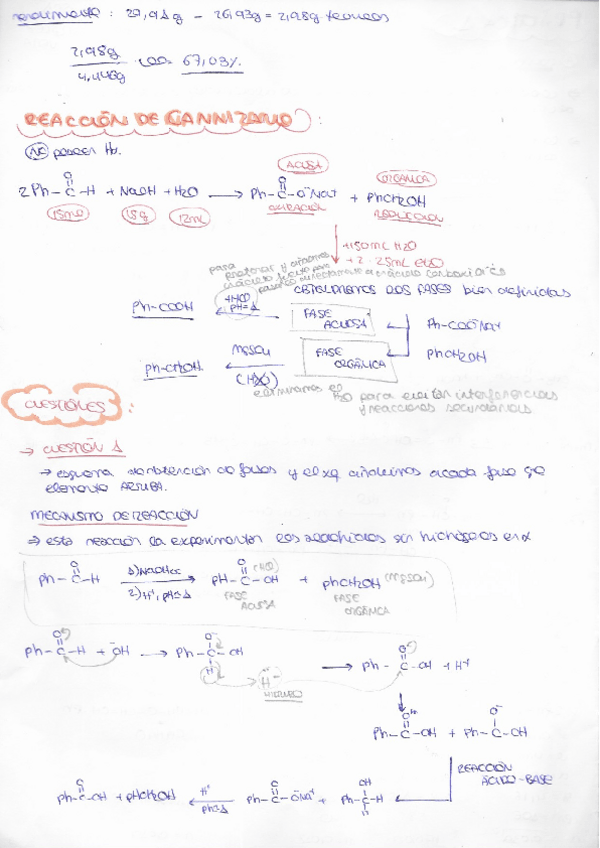 rendimiento : 29,91g - 26,93g = 2,98g teoricos
2,98g
4,446g
·100 67,03%
REACCIÓN DE CANNIZARO :
NO poseen Hα.
ACUOSA
ORGÁNICA
2 Ph - C - H + NaOH + H2O → Ph - C - O⁻Na⁺ + PhCH2OH
O
O
15mL
15g
12mL
OXIDACIÓN
REDUCCION
+150mL H2O
+2 · 25mL Et2O
para
protonar y
pasar
directamente a
ácido carboxílico
OBTENEMOS DOS FASES bien definidas
Ph-COOH
+HCl
pH=1
FASE
ACUOSA
Ph-COO⁻Na⁺
Ph-CH2OH.
MgSO4
FASE
ORGÁNICA
PhCH2OH
eliminamos el H2O para evitar interferencias
y reacciones secundarias
CUESTIONES :
→ CUESTIÓN 1
→ esquema de obtención de fases y el xq añadimos a cada fase ese
elemento ARRIBA.
MECANISMO DE REACCIÓN
⇒ esta reacción la experimentan los aldehidos sin hidrógenos en α
Ph - C - H
O
1) NaOH cc
2) H⁺, pH=1
PH - C - OH
O
(HCl)
+ phCH2OH (MgSO4)
FASE
ACUOSA
FASE
ORGÁNICA
Ph - C - H + ⁻OH → Ph - C - OH → Ph - C - OH + H⁻
O
O⁻
H
H⁻
HIDRURO
O
Ph - C - OH + Ph - C - OH
O⁻
REACCIÓN
ÁCIDO-BASE
Ph-C-OH + PhCH2OH
O
H⁺
pH=1
Ph - C - O⁻Na⁺ + Ph - C - H
O
OH
H